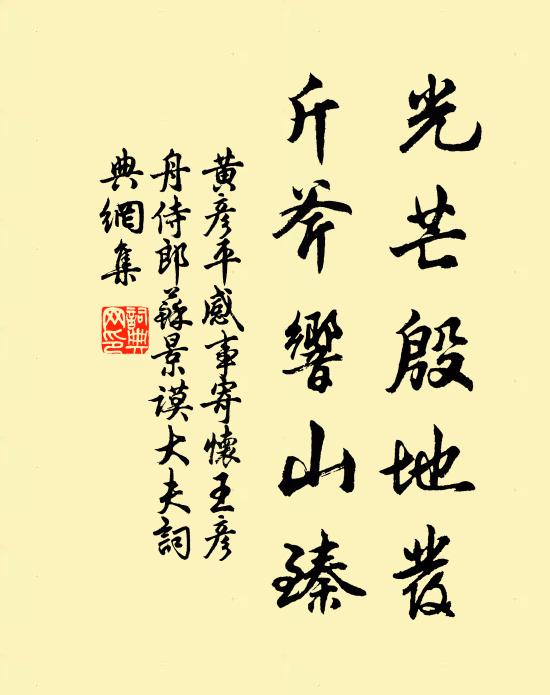 光芒殷地發
斤斧響山臻
黄彦平感事寄懷王彦
舟侍郎蘇景謨大夫詞
典網集
詞典
网印